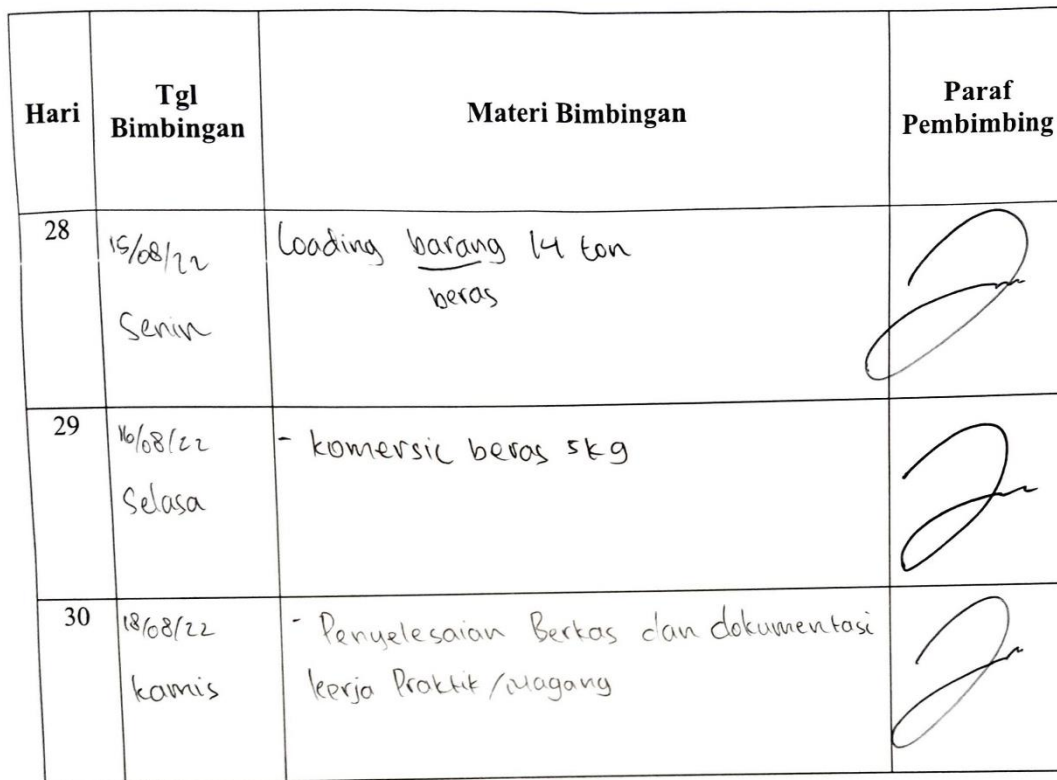 Hari
Tgl
Bimbingan
Materi Bimbingan
Paraf
Pembimbing
28
15/08/22
Senin
Loading barang 14 ton
beras
29
16/08/22
Selasa
- komersil beras 5kg
30
18/08/22
kamis
- Penyelesaian Berkas dan dokumentasi
kerja Praktik/Magang